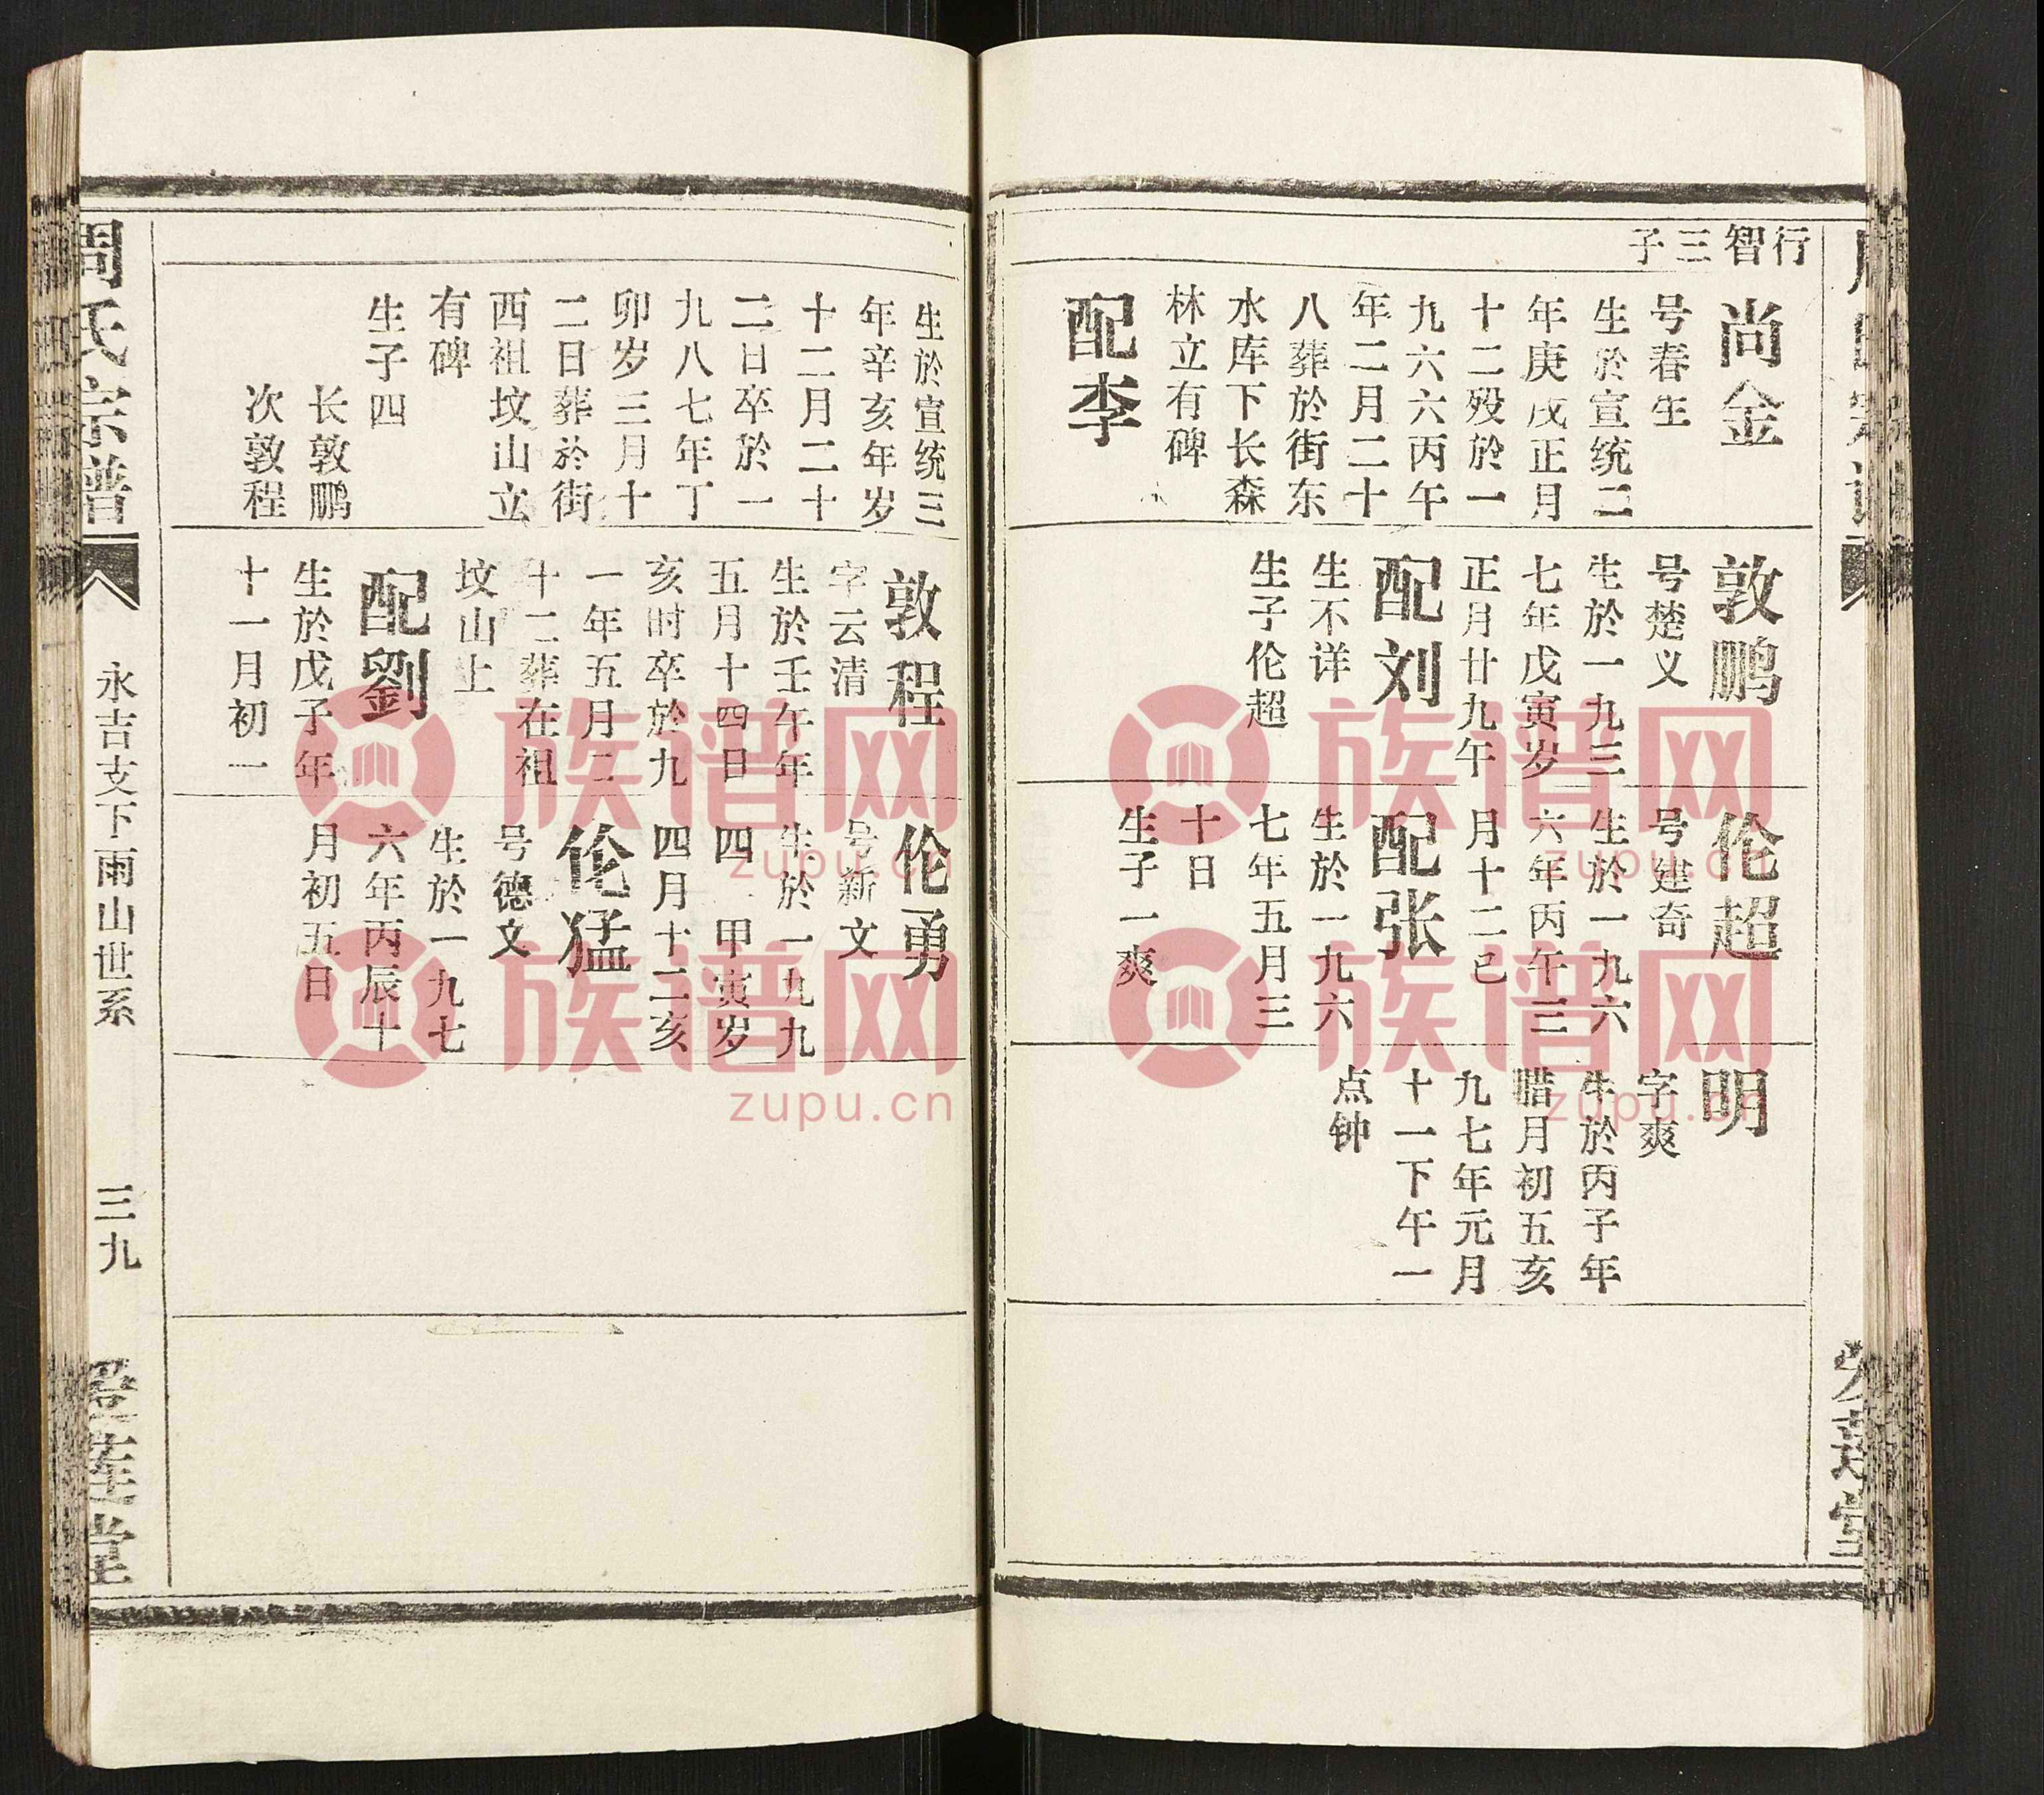 行智三子
尚金
号春生
生於宣统二
年庚戌正月
十二殁於一
九六六丙午
年二月二十
八葬於街东
水库下长森
林立有碑
配李
敦鹏
号楚义
生於一九三
七年戊寅岁
正月廿九午
配刘
生不详
生子伦超
伦超
号建奇
生於一九六
六年丙午三
月十二己
配张
生於一九六
七年五月三
十日
生子一爽
明
字爽
生於丙子年
腊月初五亥
九七年元月
十一下午一
点钟
生於宣统三
年辛亥年岁
十二月二十
二日卒於一
九八七年丁
卯岁三月十
二日葬於街
西祖坟山立
有碑
生子四
长敦鹏
次敦程
敦程
字云清
生於壬午年
五月十四日
亥时卒於九
一年五月二
十二葬在祖
坟山上
配劉
生於戊子年
十一月初一
伦勇
号新文
生於一九九
四一甲寅岁
四月十二亥
伦猛
号德文
生於一九七
六年丙辰十
月初五日
周氏宗谱
永吉支下雨山世系
三九
爱莲堂
族谱网
zupu.cn
族谱网
zupu.cn
族谱网
zupu.cn
族谱网
zupu.cn